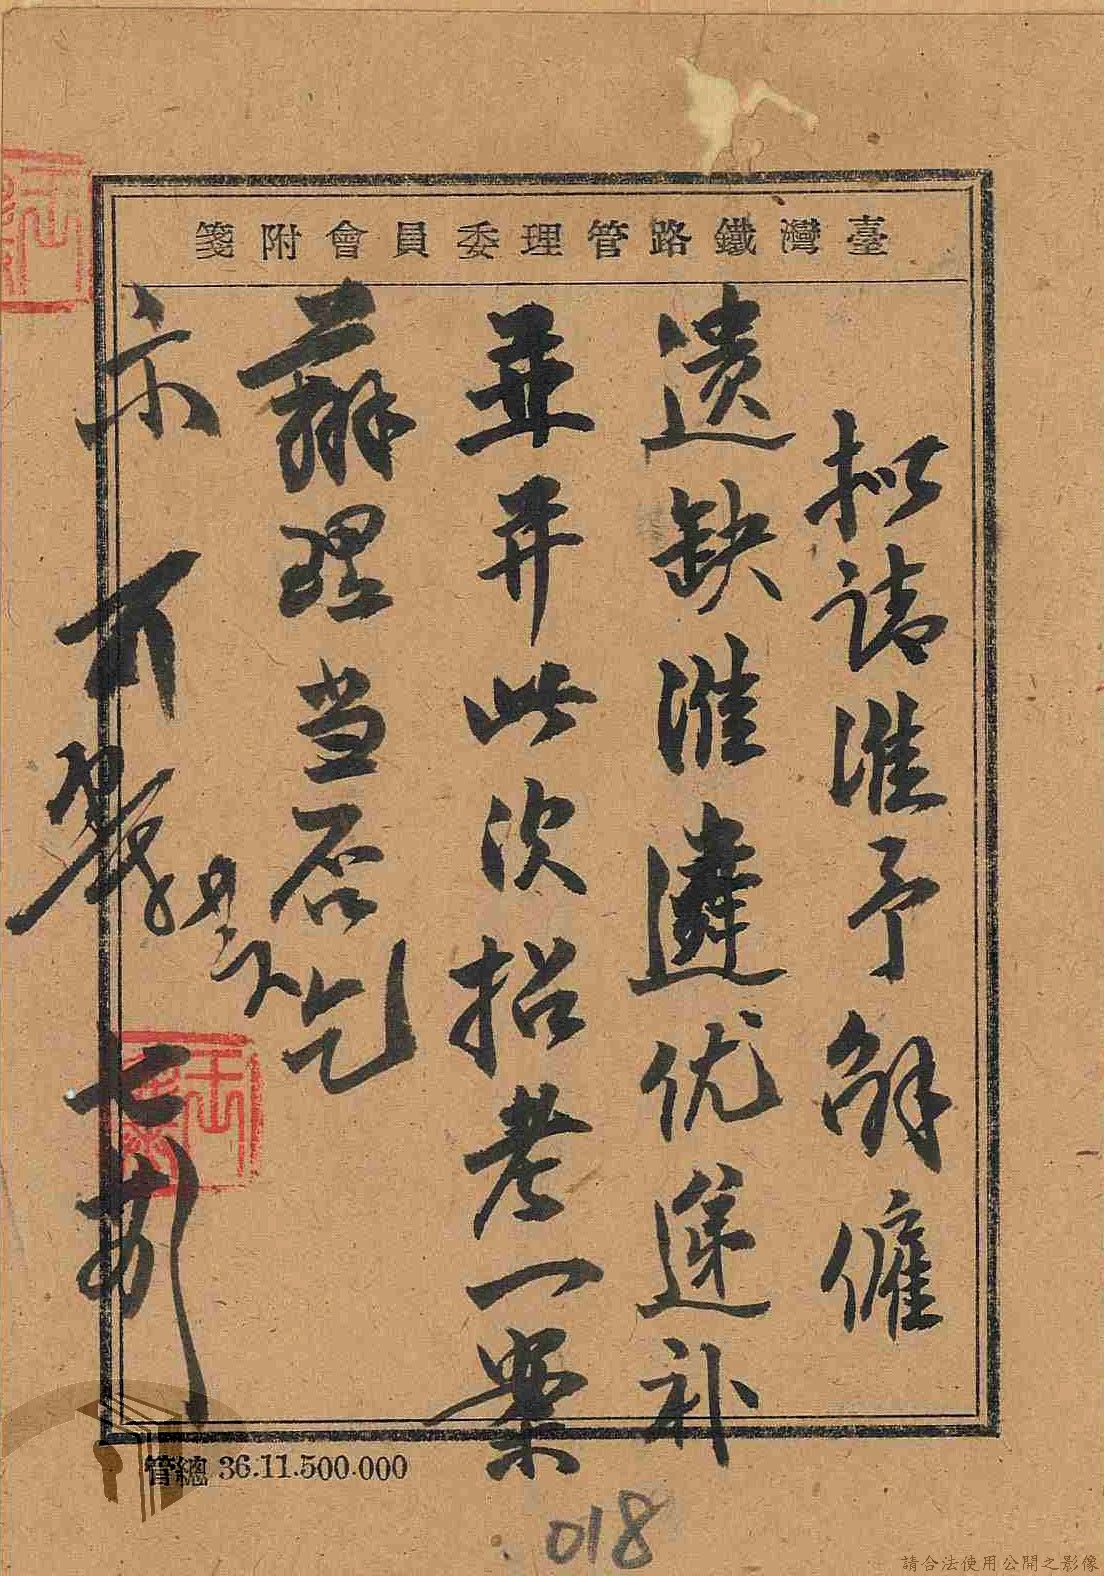 臺灣鐵路管理委員會附箋
拟請准予解僱
遺缺准遴优递补
並并此次招考一案
辦理当否乞
示
可
總管 36.11.500.000
018
請合法使用公開之影像